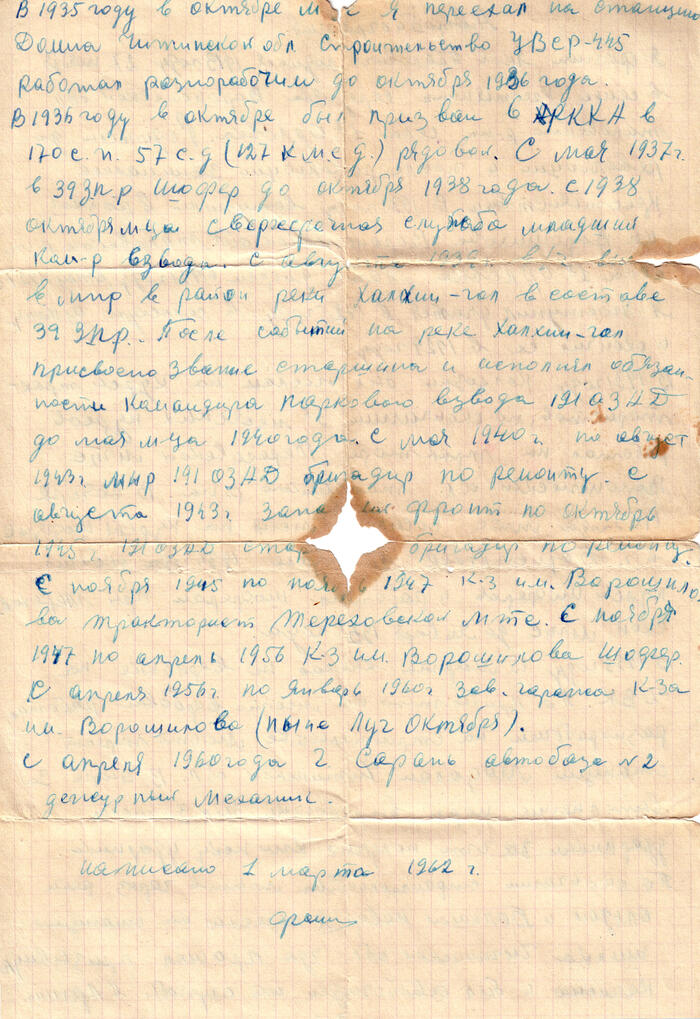 В 1935 году в октябре м Я переехал на станцию
Домна Читинской обл строительство УВСР-445
работал разнорабочим до октября 1936 года.
В 1936 году в октябре был призван в РККА в
170 с.п. 57 с.д (127 к.м.с.д.) рядовой. С мая 1937г.
в 39 З.п.р Шофер до октября 1938 года. с 1938
октября м-ца сверхсрочная служба младший
Ком-р взвода. с август
в МНР в район реки Халхин-гол в составе
39 ЗПР. После событий на реке Халхин-гол
присвоено Звание старшина и исполнял обязан-
ности Командира паркового взвода 191 ОЗАД
до мая м-ца 1940 года. с мая 1940 г. по август
1943г. МНР 191 ОЗАД бригадир по ремонту. с
августа 1943г. Запа фронт по октябрь
1945 г. 191 ОЗАД стар бригадир по ремонту.
С ноября 1945 по нояб 1947 К-з им. Ворошило-
ва тракторист Тереховской мтс. С ноября
1947 по апрель 1956 К-з им. Ворошилова Шофер.
С апреля 1956г. по Январь 1960г Зав. гаража К-За
им. Ворошилова (ныне Луч Октября).
с апреля 1960 года г Сарань автобаза №2
дежурный механик.
написано 1 марта 1962 г.